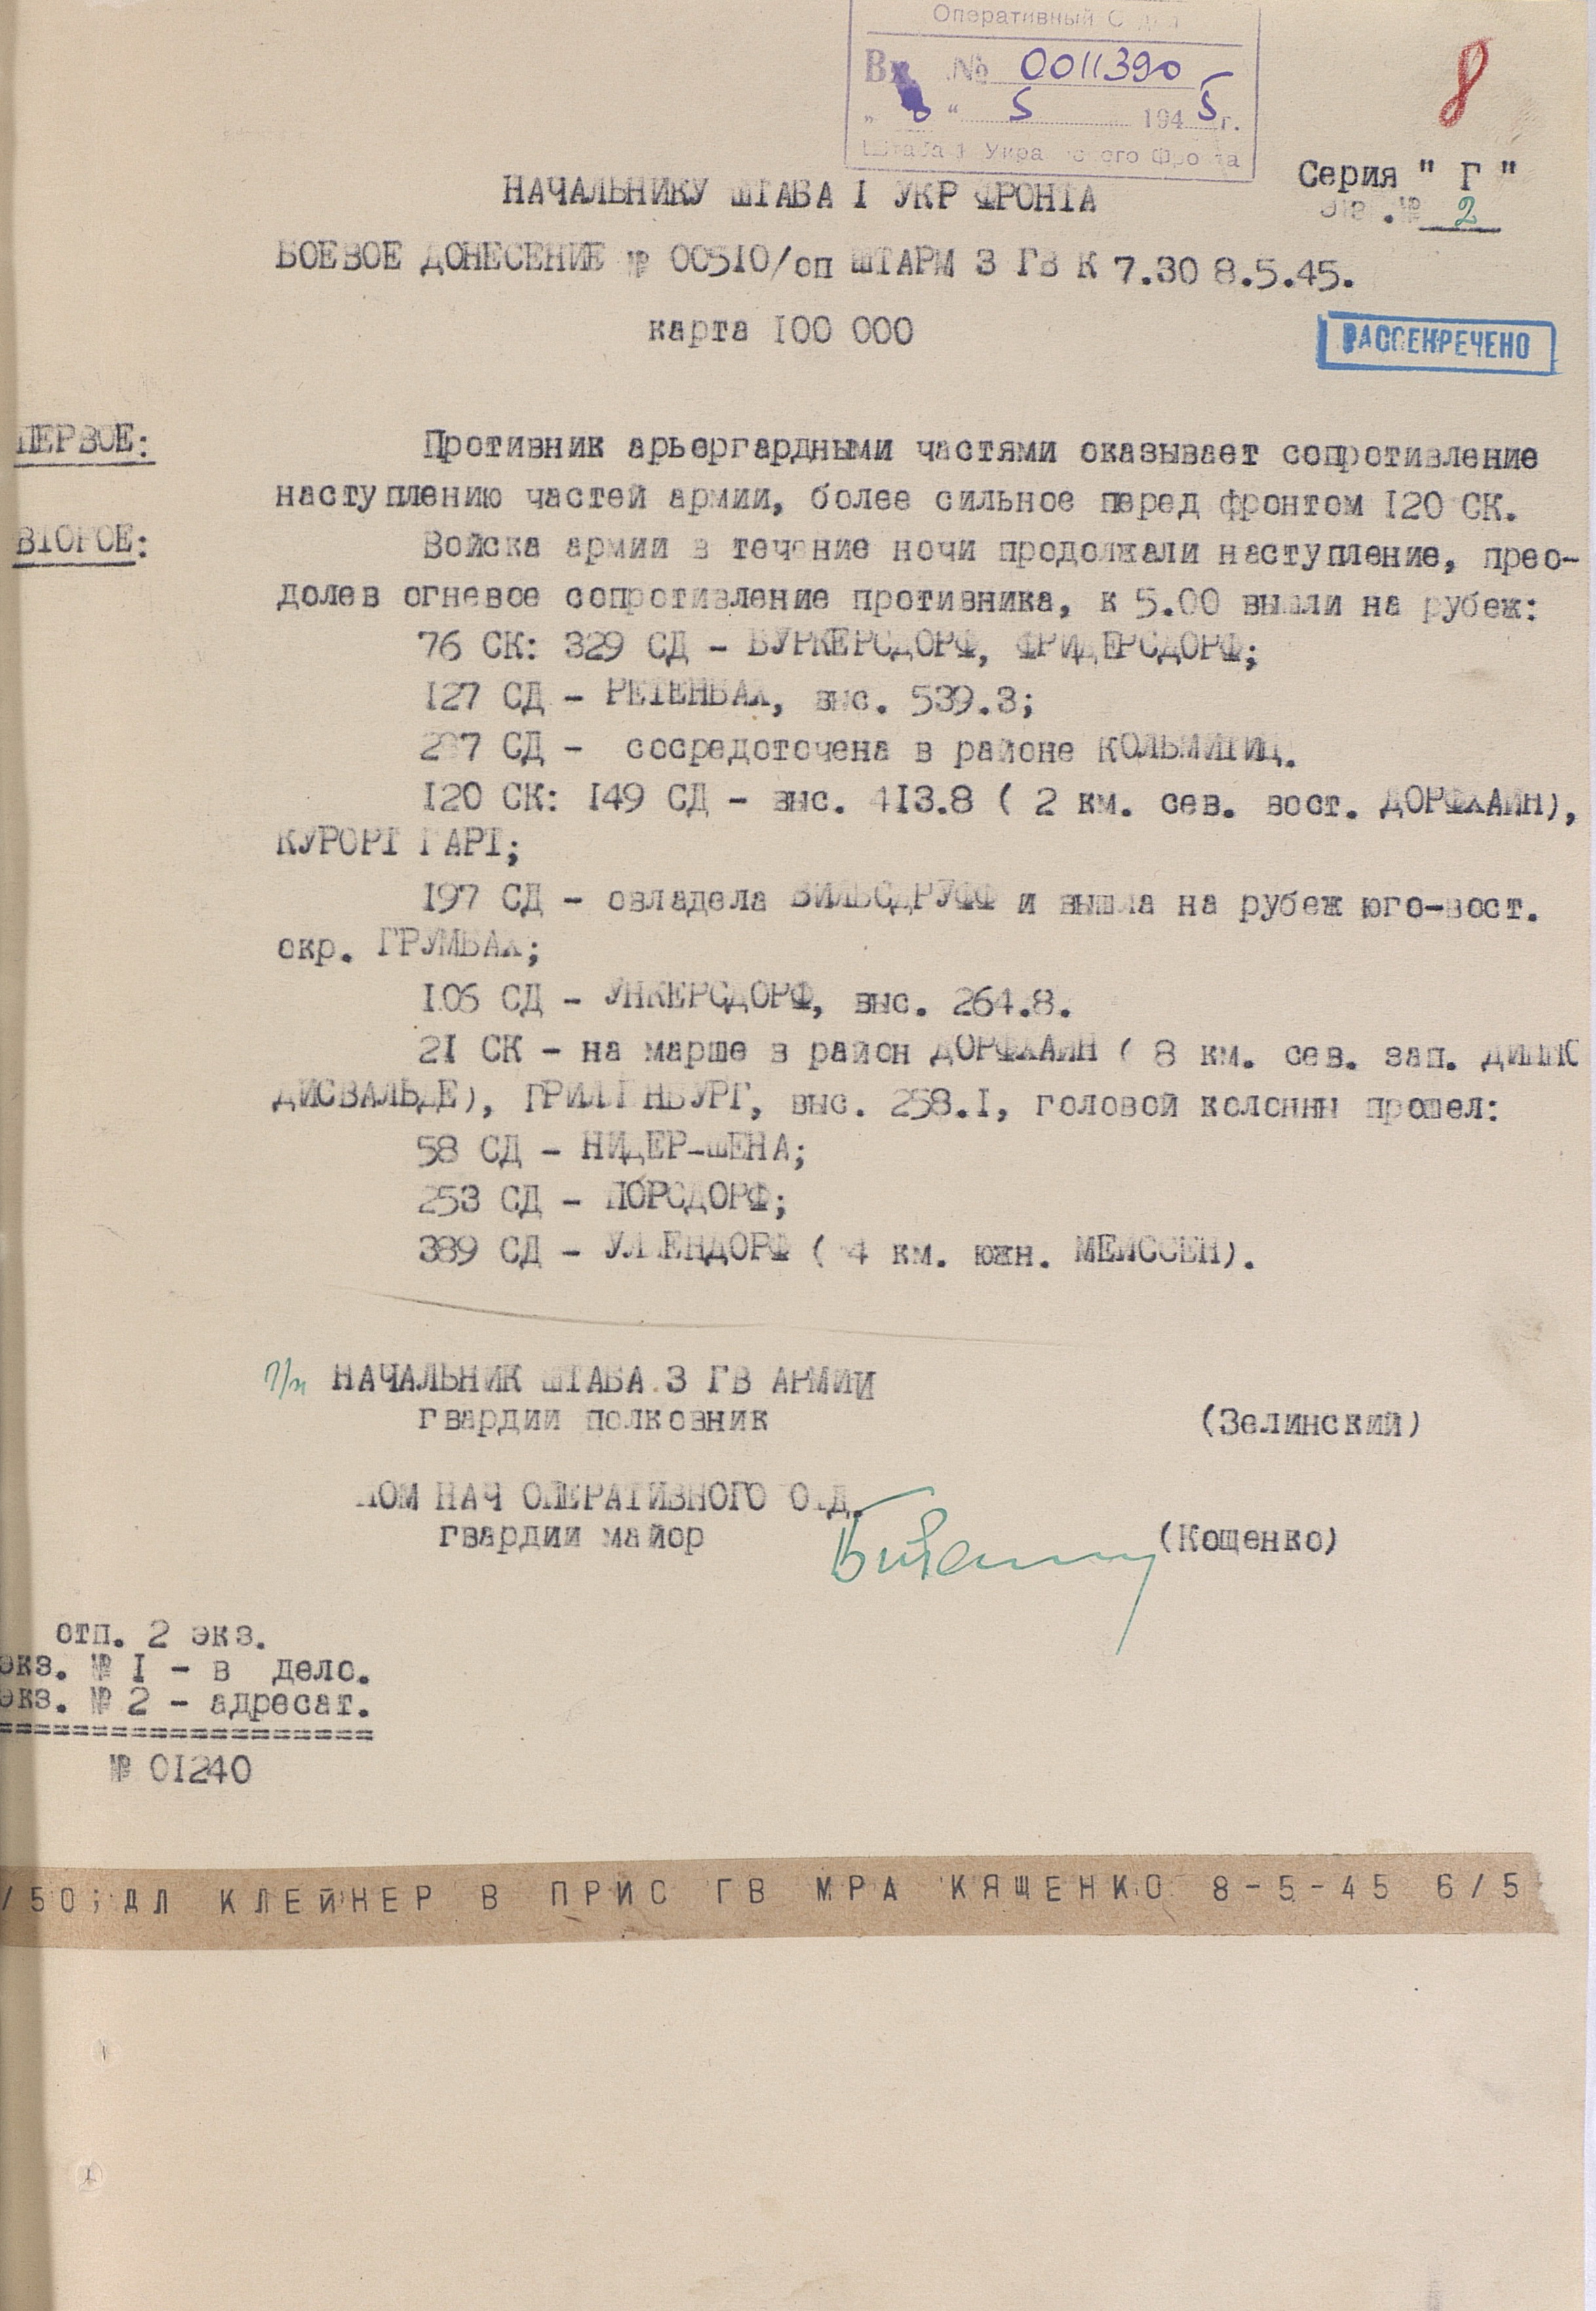 Оперативный
Вх. № 0011390
" " 5 1945 г.
Штаба 1 Украинского Фронта
8
Серия " Г "
№ 2
НАЧАЛЬНИКУ ШТАБА I УКР ФРОНТА
БОЕВОЕ ДОНЕСЕНИЕ № 00510/оп ШТАРМ 3 ГВ К 7.30 8.5.45.
карта 100 000
РАССЕКРЕЧЕНО
ПЕРВОЕ: Противник арьергардными частями оказывает сопротивление
наступлению частей армии, более сильное перед фронтом 120 СК.
ВТОРОЕ: Войска армии в течение ночи продолжали наступление, прео-
долев огневое сопротивление противника, к 5.00 вышли на рубеж:
76 СК: 329 СД - БУРКЕРСДОРФ, ФРИДЕРСДОРФ;
127 СД - РЕТЕНБАХ, выс. 539.3;
287 СД - сосредоточена в районе КОЛЬМИТИЦ.
120 СК: 149 СД - выс. 413.8 ( 2 км. сев. вост. ДОРФХАИН),
КУРОРТ ГАРТ;
197 СД - овладела ВИЛЬСДРУФФ и вышла на рубеж юго-вост.
окр. ГРУМБАХ;
106 СД - УНКЕРСДОРФ, выс. 264.8.
21 СК - на марше в район ДОРФХАИН ( 8 км. сев. зап. ДИППО
ДИСВАЛЬДЕ), ГРИЛЕНБУРГ, выс. 258.1, головой колонны прошел:
58 СД - НИДЕР-ШЕНА;
253 СД - ПОРСДОРФ;
389 СД - УЛЛЕНДОРФ ( 4 км. южн. МЕЙССЕН).
п/п НАЧАЛЬНИК ШТАБА 3 ГВ АРМИИ
гвардии полковник (Зелинский)
ПОМ НАЧ ОПЕРАТИВНОГО ОТД.
гвардии майор (Кощенко)
отп. 2 экз.
экз. № I - в дело.
экз. № 2 - адресат.
====================
№ 01240
/50;ДЛ КЛЕЙНЕР В ПРИС ГВ МРА КЯЩЕНКО 8-5-45 6/5